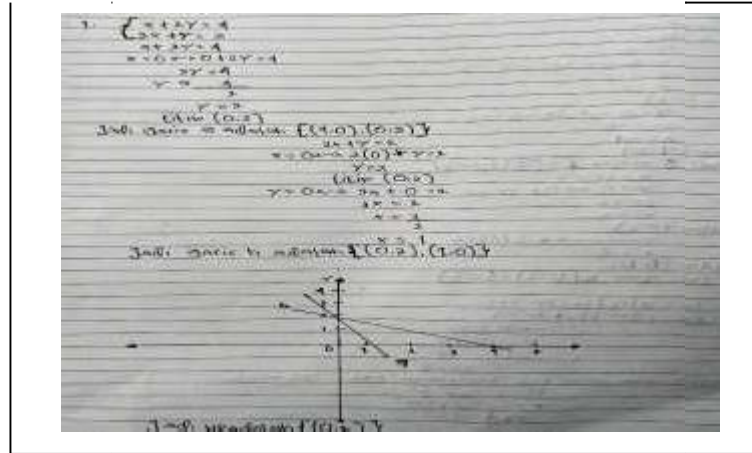 x + 2y = 4
2x + y = 2
x + 2y = 4
x = 0 → 0 + 2y = 4
2y = 4
y = 4
2
y = 2
titik (0,2)
Jadi garis adalah {(4,0), (0,2)}
2x + y = 2
x = 0 → 2(0) + y = 2
y = 2
titik (0,2)
y = 0 → 2x + 0 = 2
2x = 2
x = 2
2
x = 1
Jadi garis adalah {(0,2), (1,0)}
Y
4
3
2
1
0 1 2 3 4 5
Jadi {(0,2)}